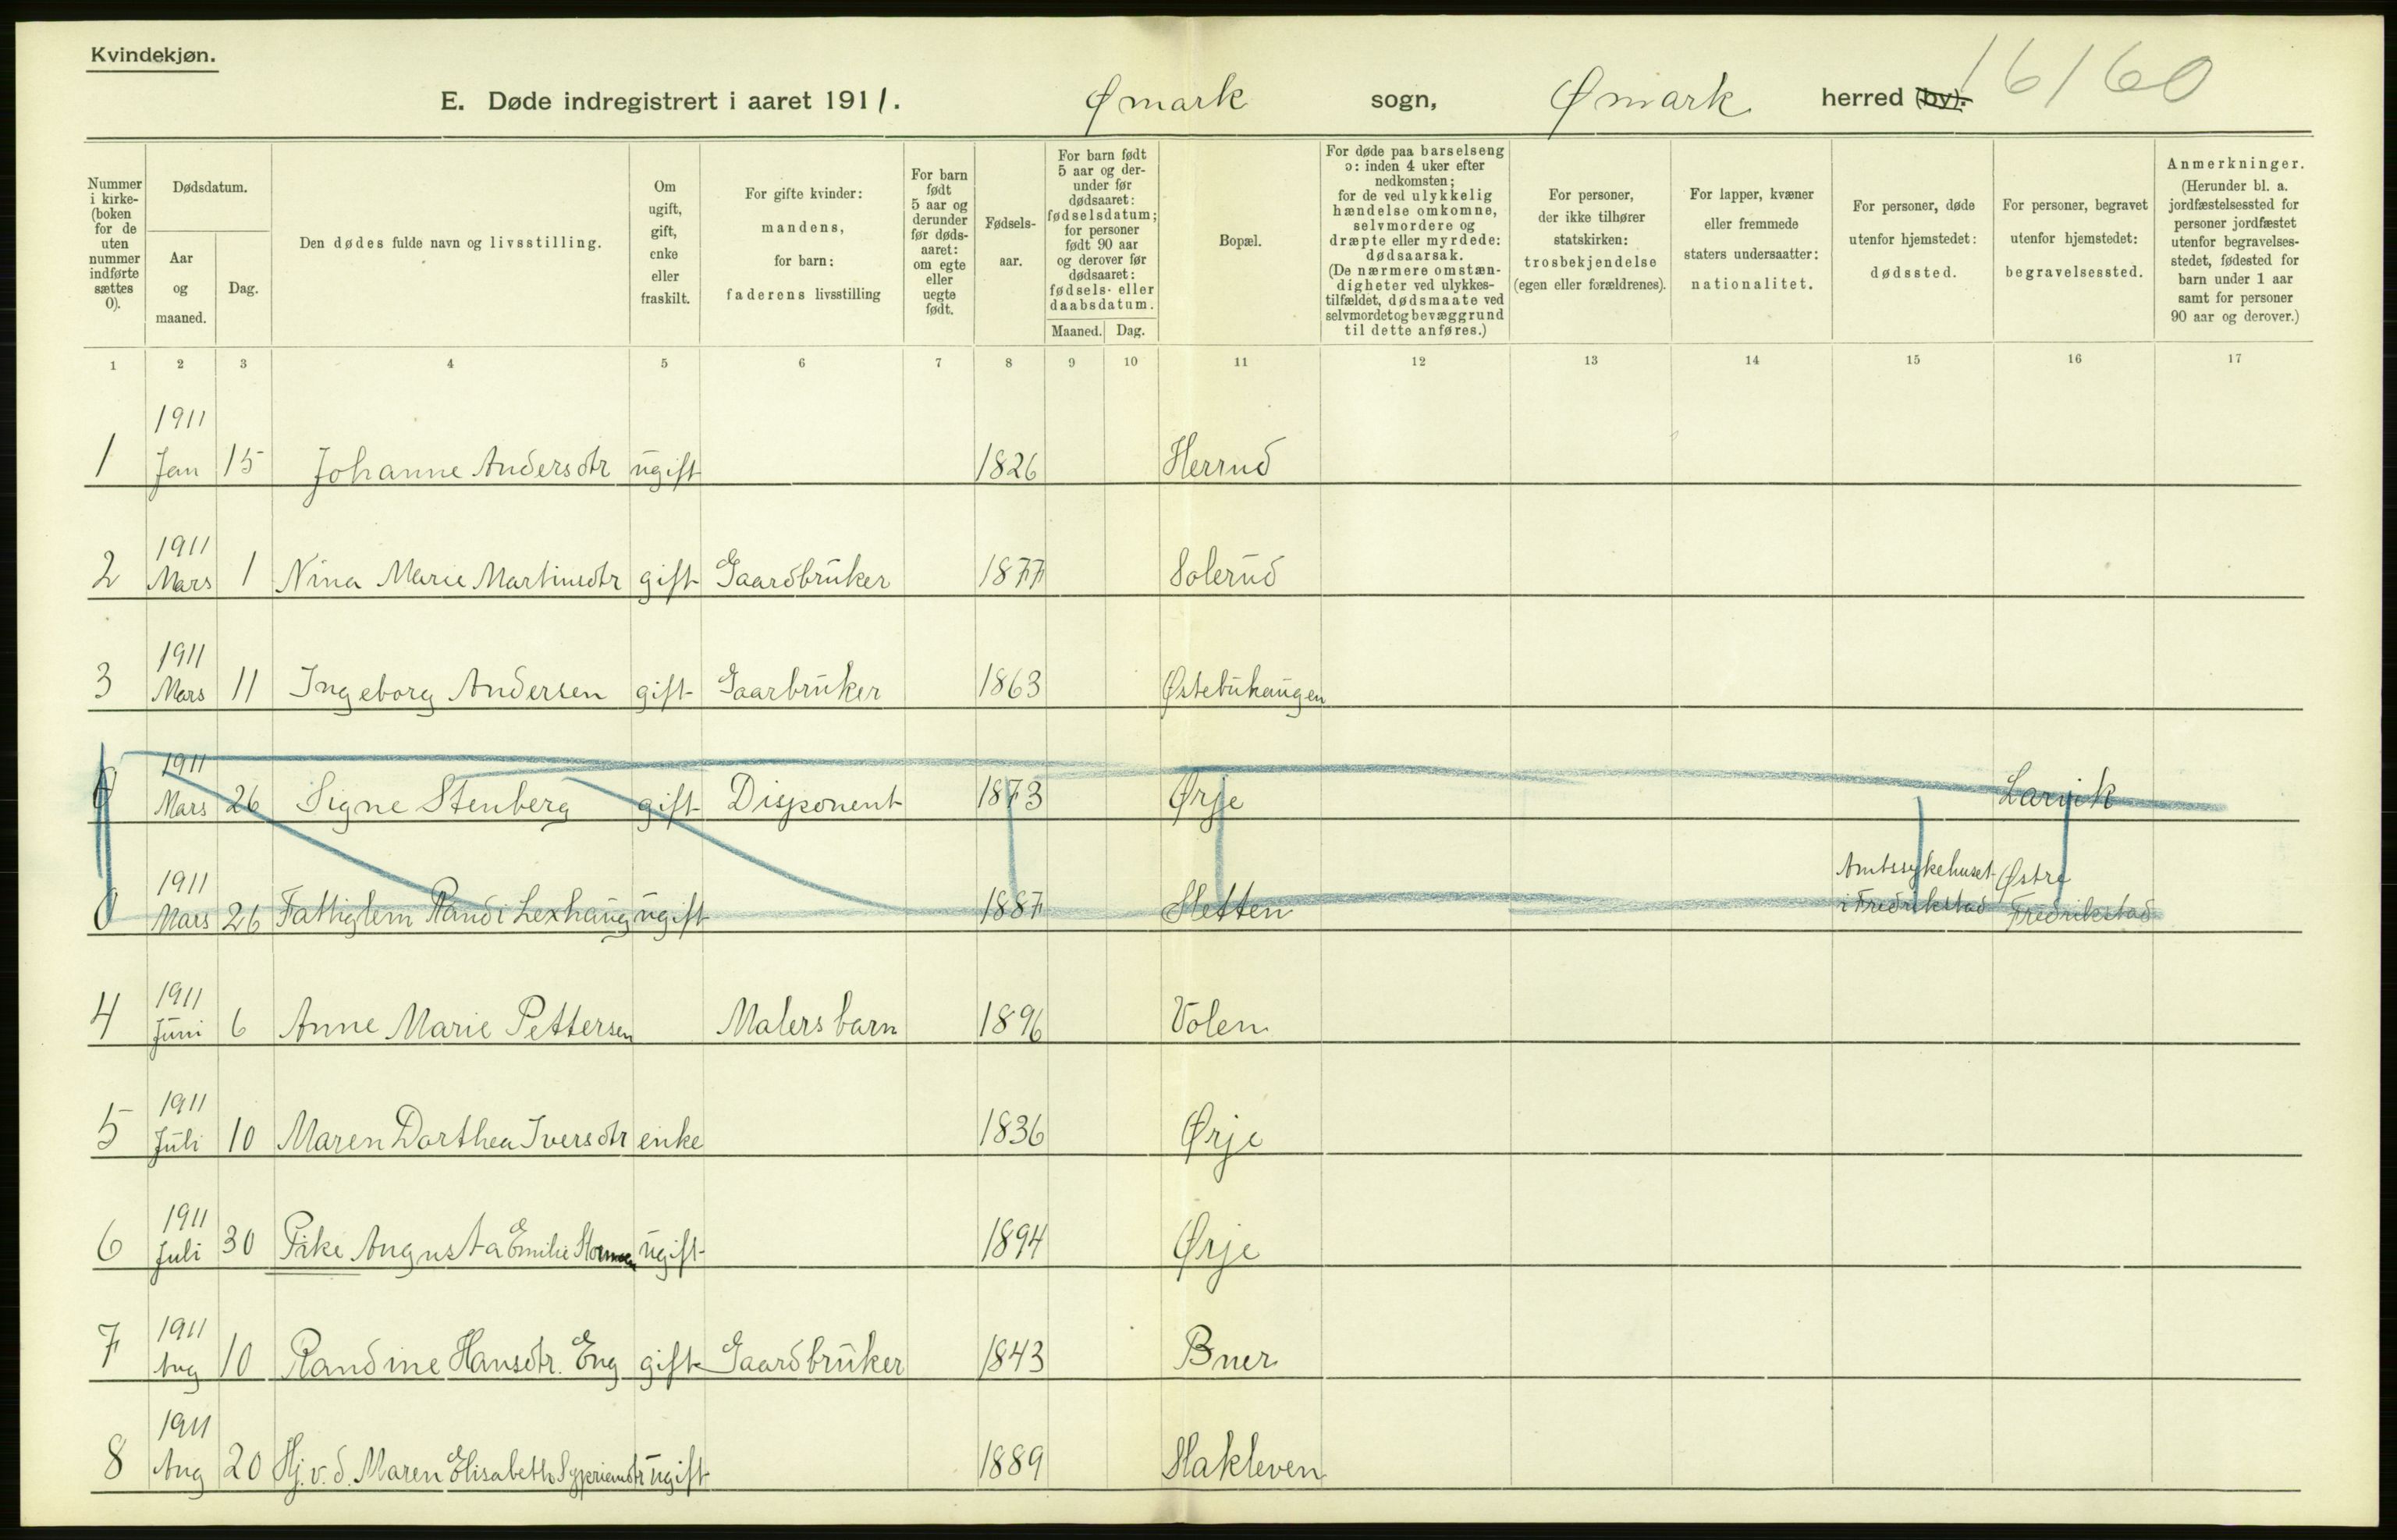 Kvindekjøn.
E. Døde indregistrert i aaret 1911. Ømark sogn, Ømark herred (by). 16/60
Nummer i kirke- (boken for de uten nummer indførte sættes 0).
Dødsdatum.
Aar og maaned.
Dag.
Den dødes fulde navn og livsstilling.
Om ugift, gift, enke eller fraskilt.
For gifte kvinder: mandens, for barn: faderens livsstilling
For barn født 5 aar og derunder før døds- aaret: om egte eller uegte født.
Fødsels- aar.
For barn født 5 aar og der- under før dødsaaret: fødselsdatum; for personer født 90 aar og derover før dødsaaret: fødsels- eller daabsdatum.
Maaned. Dag.
Bopæl.
For døde paa barselseng ɔ: inden 4 uker efter nedkomsten; for de ved ulykkelig hændelse omkomne, selvmordere og dræpte eller myrdede: dødsaarsak. (De nærmere omstæn- digheter ved ulykkes- tilfældet, dødsmaate ved selvmordet og bevæggrund til dette anføres.)
For personer, der ikke tilhører statskirken: trosbekjendelse (egen eller forældrenes).
For lapper, kvæner eller fremmede staters undersaatter: nationalitet.
For personer, døde utenfor hjemstedet: dødssted.
For personer, begravet utenfor hjemstedet: begravelsessted.
Anmerkninger. (Herunder bl. a. jordfæstelsessted for personer jordfæstet utenfor begravelses- stedet, fødested for barn under 1 aar samt for personer 90 aar og derover.)
1 2 3 4 5 6 7 8 9 10 11 12 13 14 15 16 17
1911
1 Jan 15 Johanne Andersdtr ugift 1826 Herrud
1911
2 Mars 1 Nina Marie Martinsdtr gift Gaardbruker 1877 Solerud
1911
3 Mars 11 Ingeborg Andersen gift Gaarbruker 1863 Østebuhaugen
1911
0 Mars 26 Signe Stenberg gift Disponent 1873 Ørje Larvik
1911 Amtssykehuset Østre
0 Mars 26 Fattiglem Randi Lexhaug ugift 1887 Sletten i Fredrikstad Fredrikstad
1911
4 Juni 6 Anne Marie Pettersen Malers barn 1896 Volen
1911
5 Juli 10 Maren Dorthea Iversdtr enke 1836 Ørje
1911
6 Juli 30 Pike Augusta Emilie ugift 1894 Ørje
1911
7 Aug 10 Randine Hansdtr. Eng gift Gaardbruker 1843 Buer
1911
8 Aug 20 Hj. v. d. Maren Elisabeth Sypriansdtr ugift 1889 Hakleven